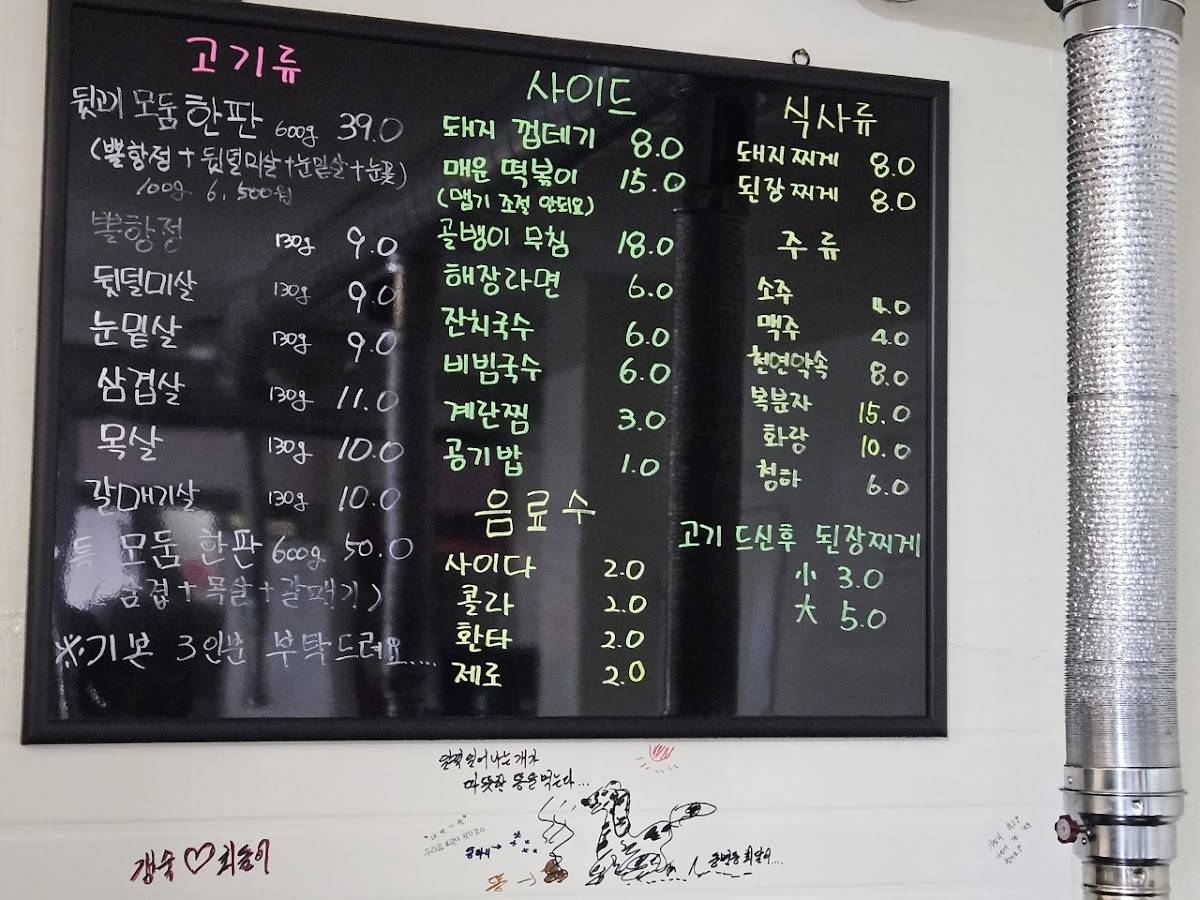 고기류
뒷고기 모둠 한판 600g 39.0
(뽈항정 + 뒷덜미살 + 눈밑살 + 눈꽃)
100g 6,500원
뽈항정 130g 9.0
뒷덜미살 130g 9.0
눈밑살 130g 9.0
삼겹살 130g 11.0
목살 130g 10.0
갈매기살 130g 10.0
특 모둠 한판 600g 50.0
(삼겹 + 목살 + 갈매기)
※기본 3인분 부탁드려요....
사이드
돼지 껍테기 8.0
매운 떡볶이 15.0
(맵기 조절 안되요)
골뱅이 무침 18.0
해장라면 6.0
잔치국수 6.0
비빔국수 6.0
계란찜 3.0
공기밥 1.0
음료수
사이다 2.0
콜라 2.0
환타 2.0
제로 2.0
식사류
돼지찌게 8.0
된장찌게 8.0
주류
소주 4.0
맥주 4.0
천연약속 8.0
복분자 15.0
화랑 10.0
청하 6.0
고기 드신후 된장찌게
小 3.0
大 5.0
일찍 일어나는 개가
따뜻한 똥을 먹는다...
똥 →